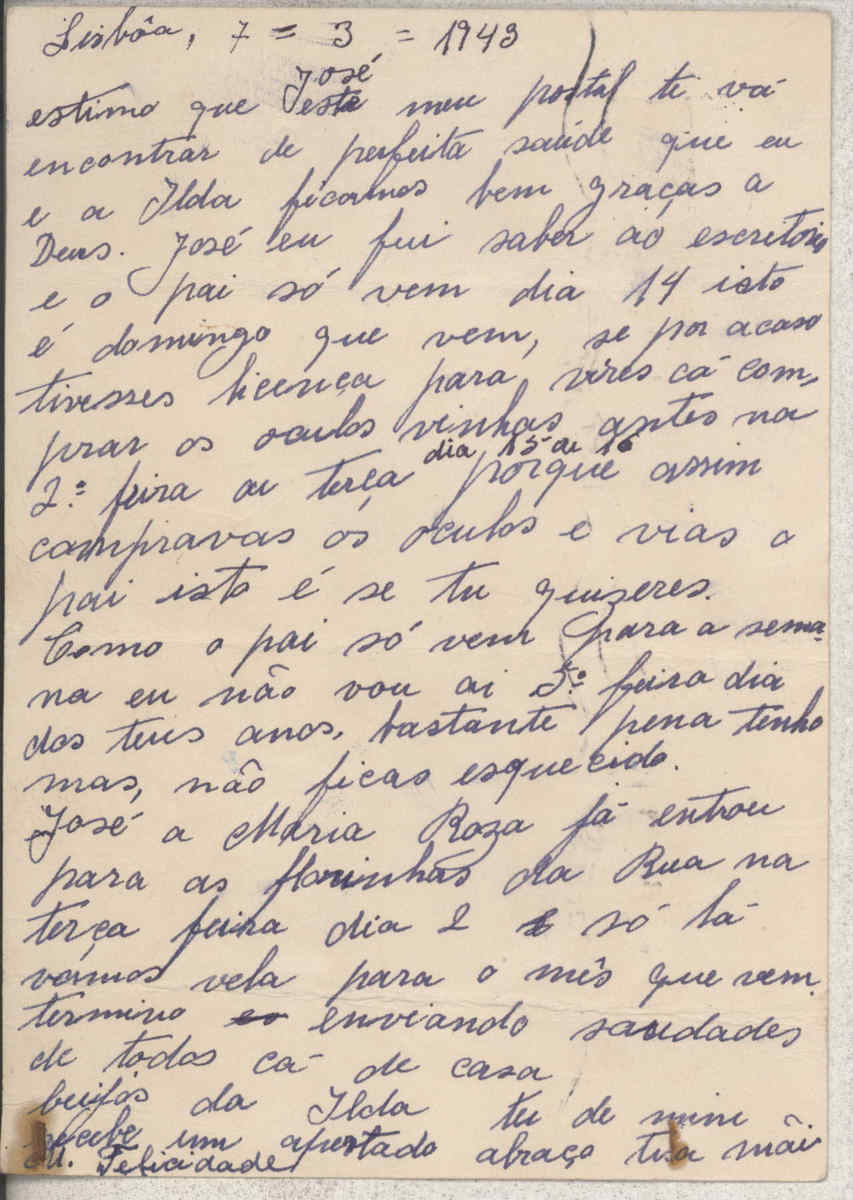 Lisbôa, 7 = 3 = 1943
José
estimo que este meu postal te vá
encontrar de perfeita saúde que eu
e a Ilda ficamos bem graças a
Deus. José eu fui saber ao escritorio
e o pai só vem dia 14 isto
é domingo que vem, se por acaso
tivesses licença para vires cá com,
prar os oculos vinhas antes na
dia 15 ou 16
2.ª feira ou terça porque assim
compravas os oculos e vias o
pai isto é se tu quiseres.
Como o pai só vem para a sema-
na eu não vou ai 5.ª feira dia
dos teus anos, bastante pena tenho
mas, não ficas esquecido.
José a Maria Roza já entrou
para as florinhas da Rua na
terça feira dia 2 só lá
vamos vela para o mês que vem.
termino enviando saudades
de todos cá de casa
beijos da Ilda tu de mim
recebe um apertado abraço tua mãi
M. Felicidade